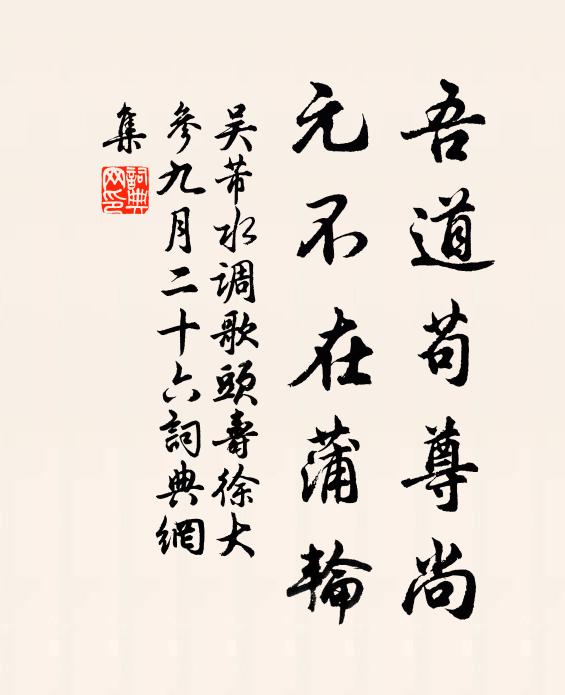 吾道苟尊尚
元不在蒲輪
吴芾水调歌頭壽徐大
參九月二十六詞典網
集
詞典網印